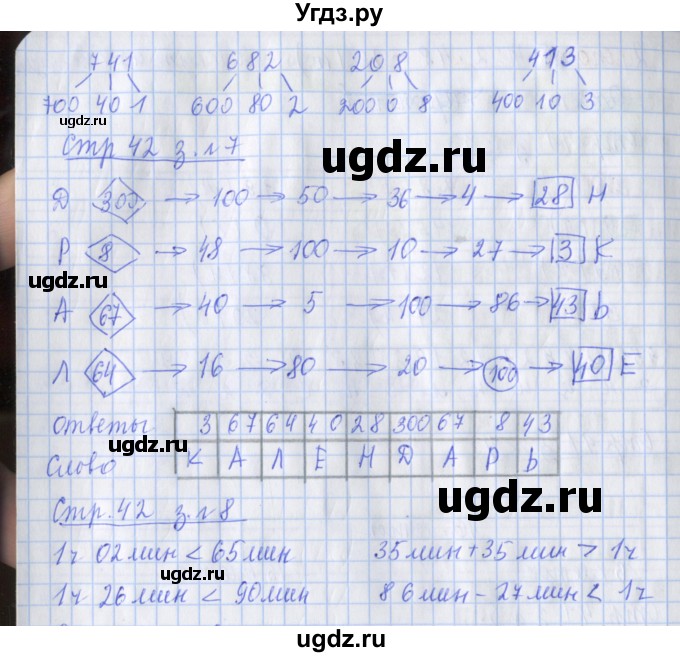 Угдз.ру
741 682 208 413
700 40 1 600 80 2 200 0 8 400 10 3
ugdz.ru ugdz.ru
Стр 42 з. № 7
ugdz.ru
Д 300 → 100 → 50 → 36 → 4 → 28 Н
ugdz.ru
Р 8 → 48 → 100 → 10 → 27 → 3 К
А 67 → 40 → 5 → 100 → 86 → 43 Ь
ugdz.ru
Л 64 → 16 → 80 → 20 → 100 → 40 Е
ответы 3 67 64 40 28 300 67 8 43
ugdz.ru
Слово К А Л Е Н Д А Р Ь
ugdz.ru
Стр. 42 з. № 8
1ч 02 мин < 65 мин 35 мин + 35 мин > 1ч
ugdz.ru
1ч 26 мин < 90 мин 86 мин - 27 мин < 1ч
ugdz.ru